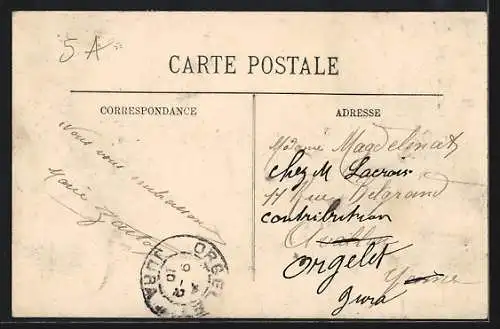 5 A
CARTE POSTALE
CORRESPONDANCE
ADRESSE
Vous vous embrassons
Marie
Madame Magdelinat
chez M Lacroix
17 Rue Belgrand
contribution
Avallon
Orgelet
Yonne
Jura
ORGELET
JURA